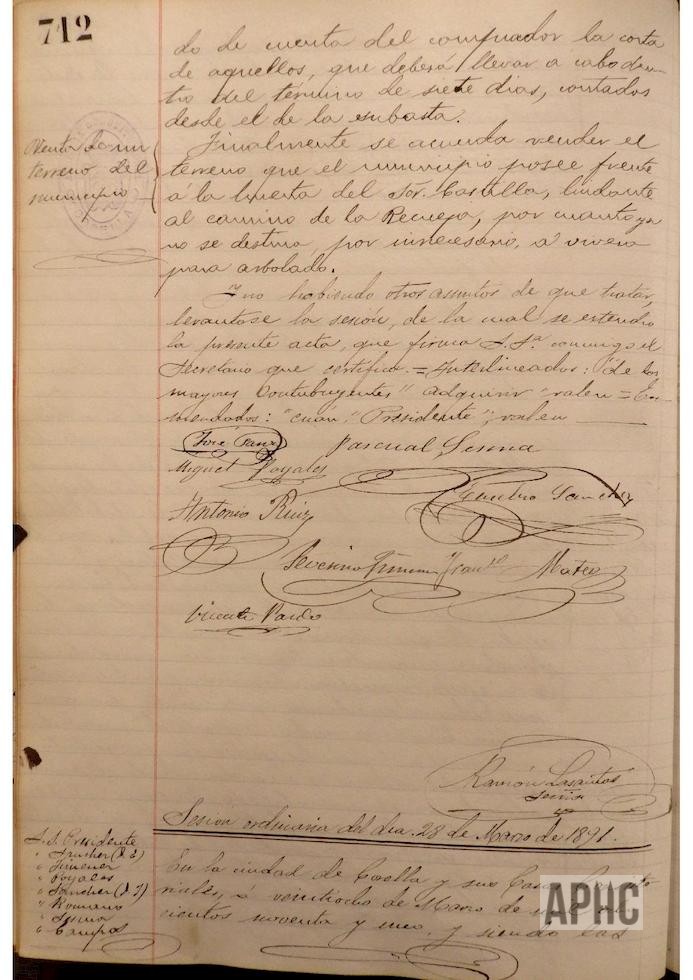 712
do de cuenta del comprador la corta
de aquellos, que deberá llevar á cabo den-
tro del término de siete dias, contados
desde el de la subasta.
Venta de un
terreno del
municipio
Finalmente se acuerda vender el
terreno que el municipio posee frente
á la huerta del Sor. Castilla, lindante
al camino de la Recueja, por cuanto ya
no se destina, por innecesario, á vivero
para arbolado.
Y no habiendo otros asuntos de que tratar,
levantose la sesión, de la cual se extendió
la presente acta, que firma S.Sª conmigo el
Secretario que certifico.=Interlineados: "de los
mayores contribuyentes" adquirir "valen=En-
mendados: "cuán", "Presidente", valen
José Sanz
Pascual Sesma
Miguel Poyales
Antonio Ruiz
Sanchez
Severino Jimenez
Franco Mateo
Vicente Pardo
Ramón Lasantas
Srio
Sesion ordinaria del dia 28 de Marzo de 1891.
S.S. Presidente
" Sancher (D J)
" Jimenez
" Poyales
" Sancher (D J)
" Romano
" Sesma
" Campos
En la ciudad de Corella y sus Casas Consisto
riales, á veintiocho de Marzo de mil
cientos noventa y uno, y siendo las
APHC